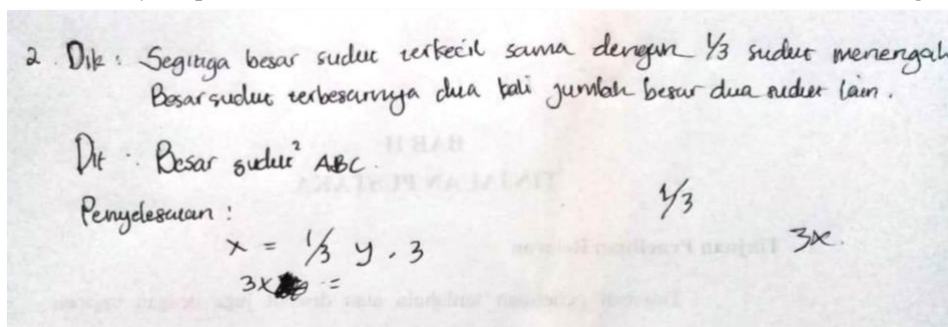 2. Dik : Segitiga besar sudut terkecil sama dengan 1/3 sudut menengah
Besar sudut terbesarnya dua kali jumlah besar dua sudut lain.
Dit : Besar sudut² ABC.
Penyelesaian :
1/3
x = 1/3 y . 3
3x.
3x =